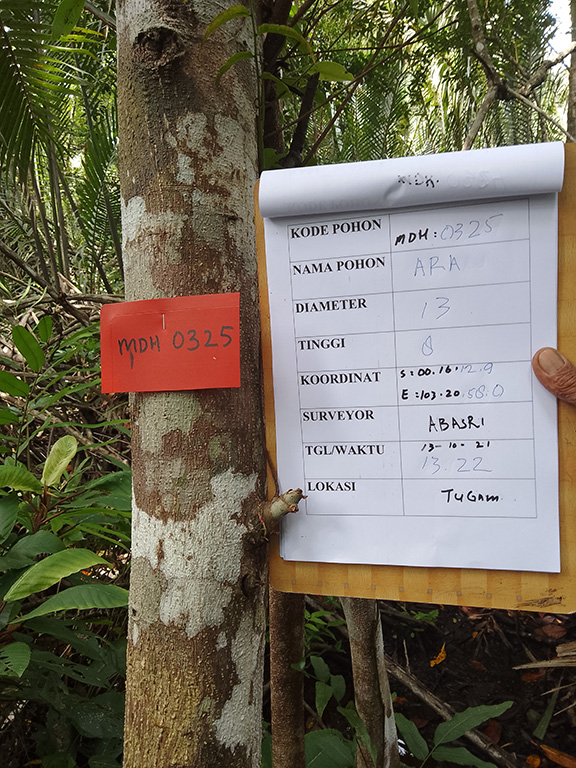 MDH 0325
KODE POHON MDH: 0325
NAMA POHON ARA
DIAMETER 13
TINGGI 8
KOORDINAT S: 00.16.12.9
E: 103.20.58.0
SURVEYOR ABASRI
TGL/WAKTU 13-10-21
13.22
LOKASI TUGAM